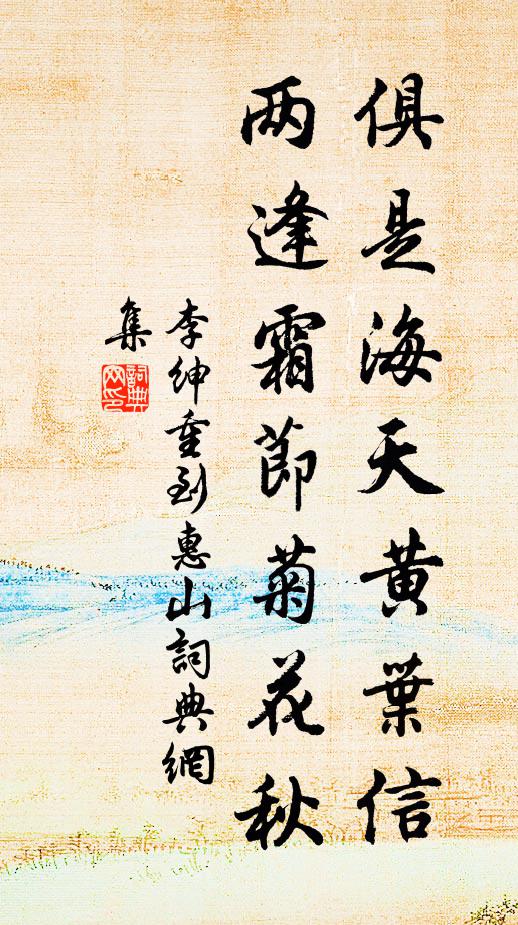 俱是海天黄葉信
两逢霜節菊花秋
李紳重到惠山詞典網
集
詞典
网印